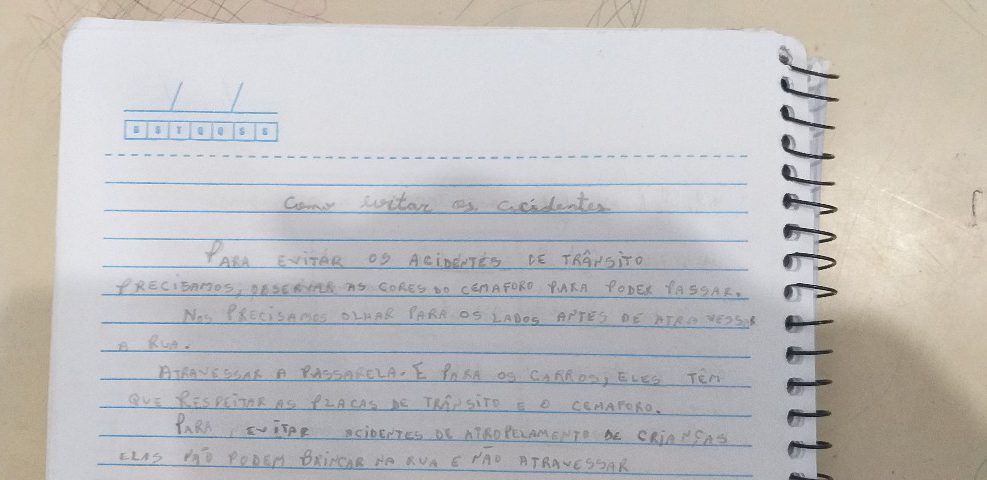 D S T Q Q S S
Como evitar os acidentes
PARA EVITAR OS ACIDENTES DE TRÂNSITO
PRECISAMOS, OBSERVAR AS CORES DO CEMAFORO PARA PODER PASSAR.
NOS PRECISAMOS OLHAR PARA OS LADOS ANTES DE ATRAVESSAR
A RUA.
ATRAVESSAR A PASSARELA. E PARA OS CARROS, ELES TÊM
QUE RESPEITAR AS PLACAS DE TRÂNSITO E O CEMAFORO.
PARA, EVITAR ACIDENTES DE ATROPELAMENTO DE CRIANÇAS
ELAS NÃO PODEM BRINCAR NA RUA E NÃO ATRAVESSAR